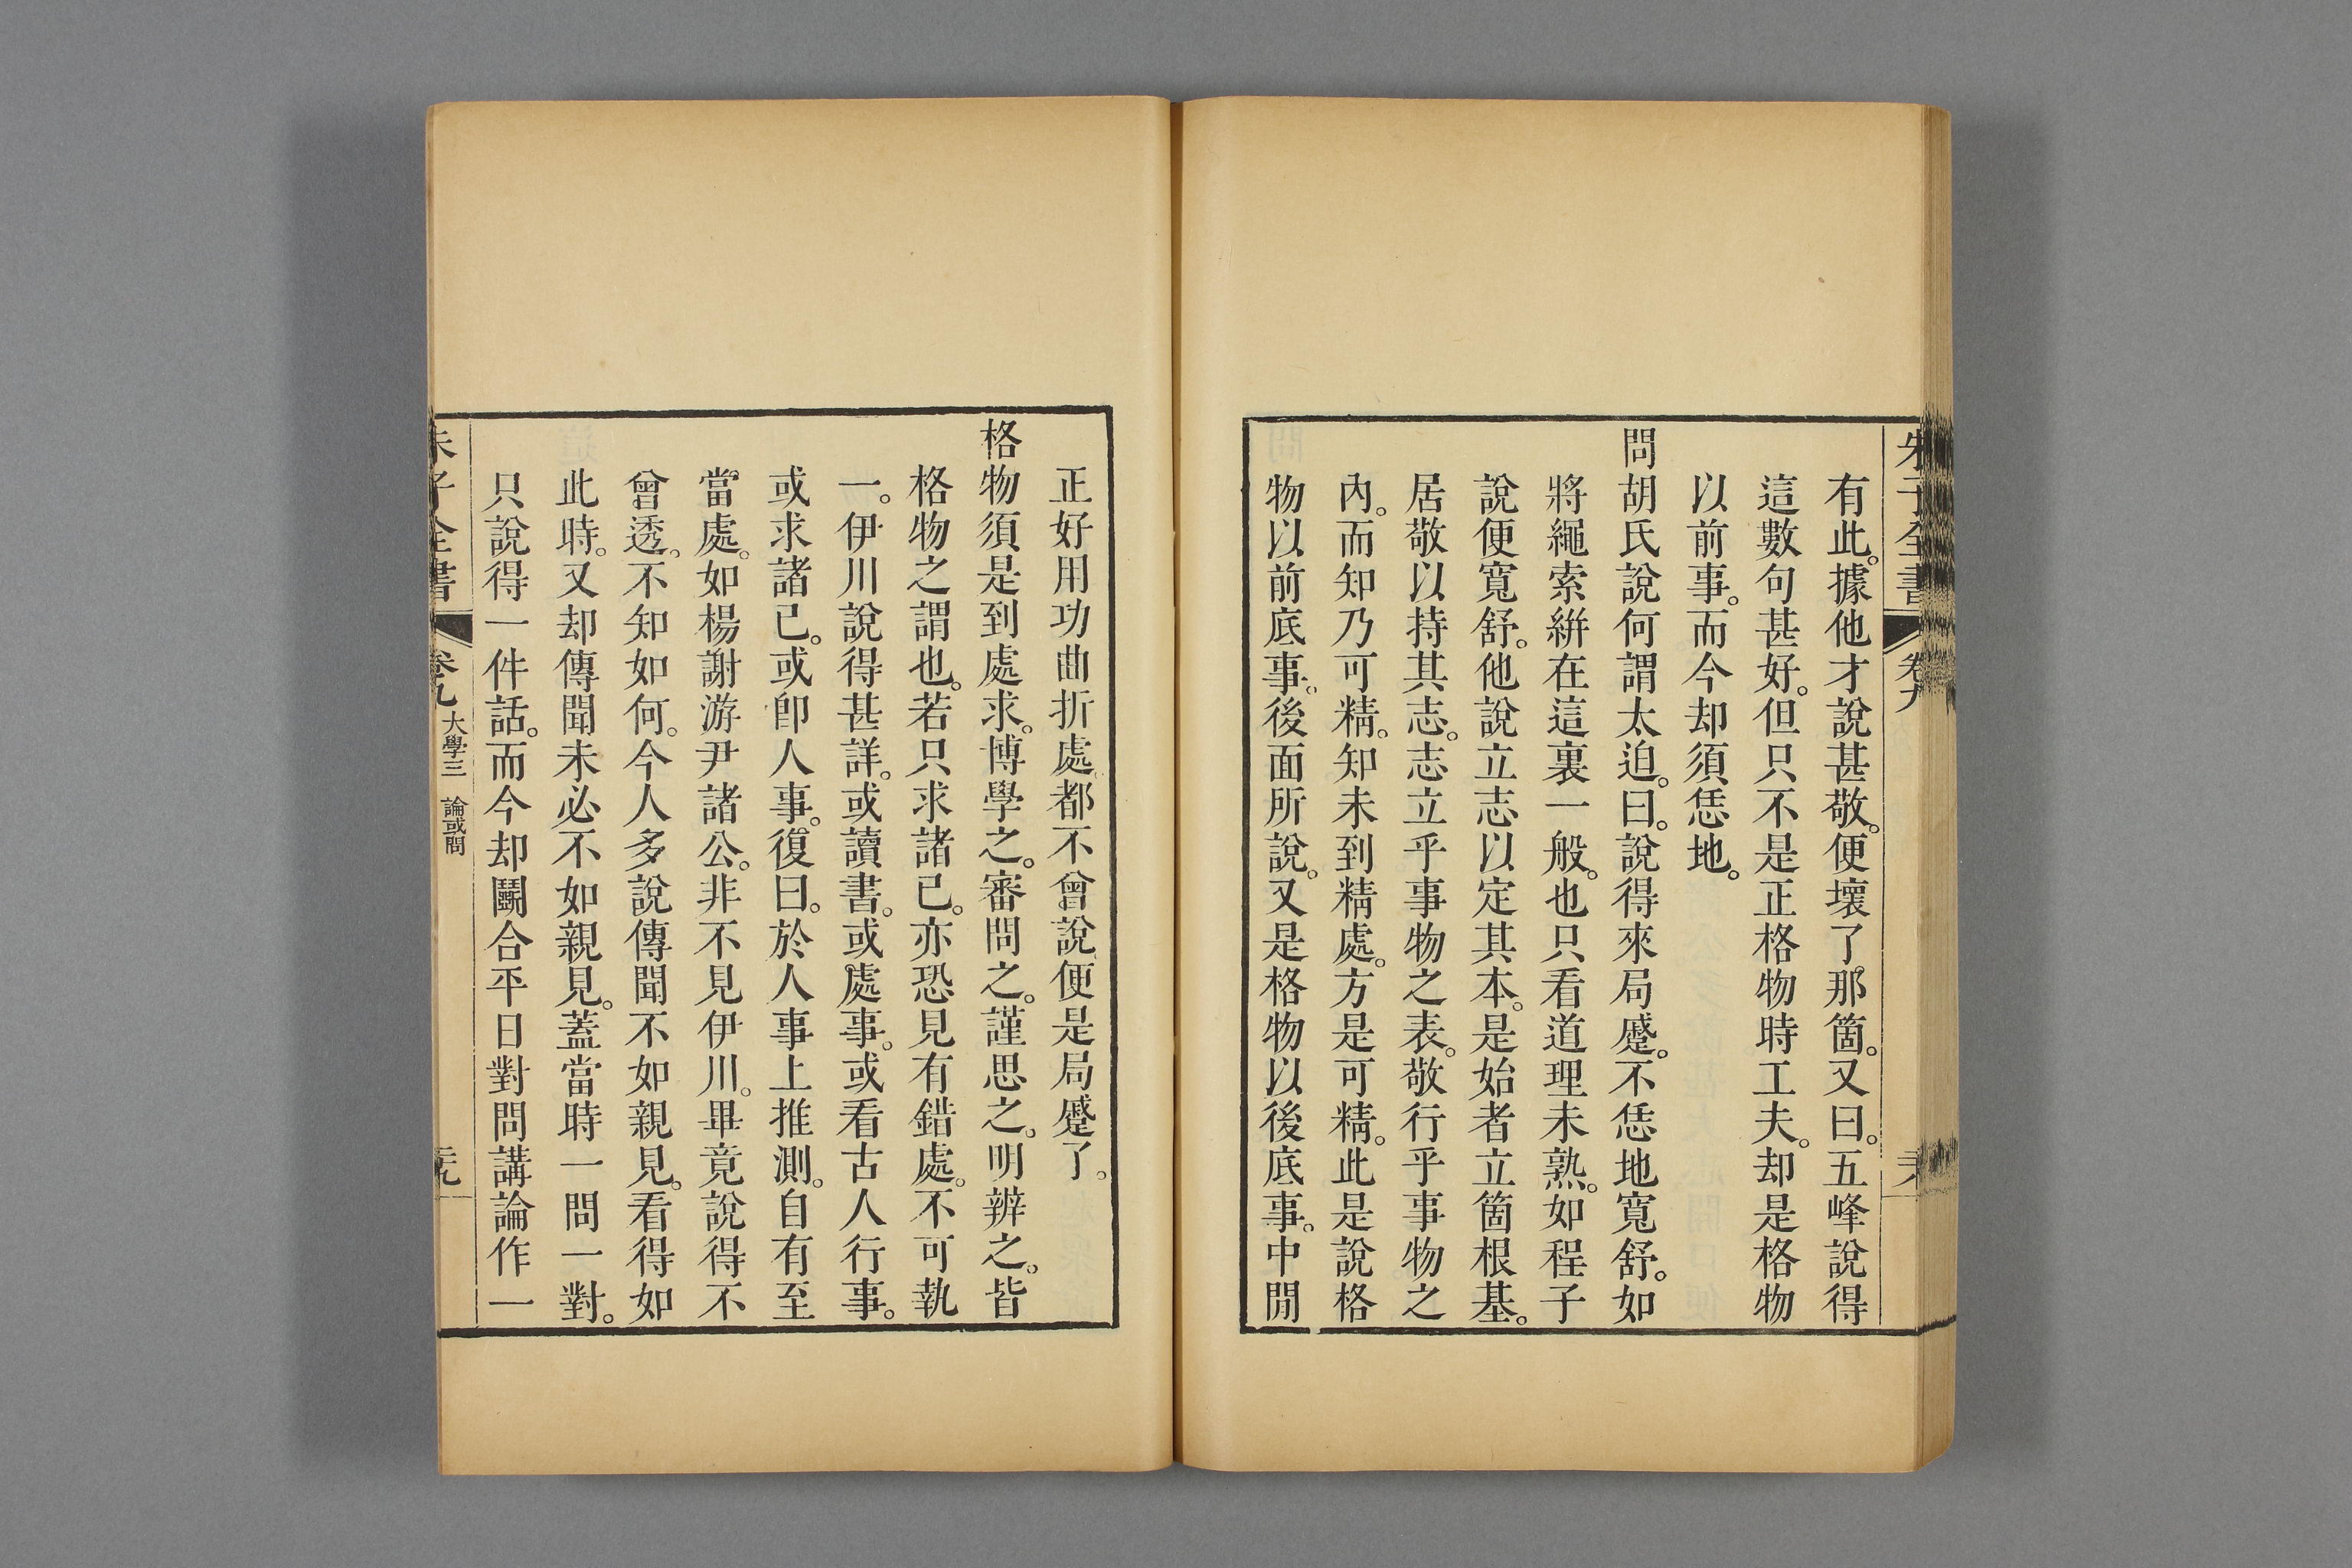 朱子全書 卷九
有此。據他才說甚敬。便壞了那箇。又曰。五峰說得
這數句甚好。但只不是正格物時工夫。却是格物
以前事。而今却須恁地。
問胡氏說何謂太迫。曰。說得來局蹙。不恁地寬舒。如
將繩索絣在這裏一般。也只看道理未熟。如程子
說便寬舒。他說立志以定其本。是始者立箇根基。
居敬以持其志。志立乎事物之表。敬行乎事物之
內。而知乃可精。知未到精處。方是可精。此是說格
物以前底事。後面所說。又是格物以後底事。中閒
正好用功曲折處。都不曾說。便是局蹙了。
格物須是到處求。博學之。審問之。謹思之。明辨之。皆
格物之謂也。若只求諸己。亦恐見有錯處。不可執
一。伊川說得甚詳。或讀書。或處事。或看古人行事。
或求諸已。或卽人事。復曰。於人事上推測。自有至
當處。如楊謝游尹諸公。非不見伊川。畢竟說得不
曾透。不知如何。今人多說傳聞不如親見。看得如
此時。又却傳聞未必不如親見。蓋當時一問一對。
只說得一件話。而今却鬭合平日對問講論作一
朱子全書 卷九 大學三 論或問 元